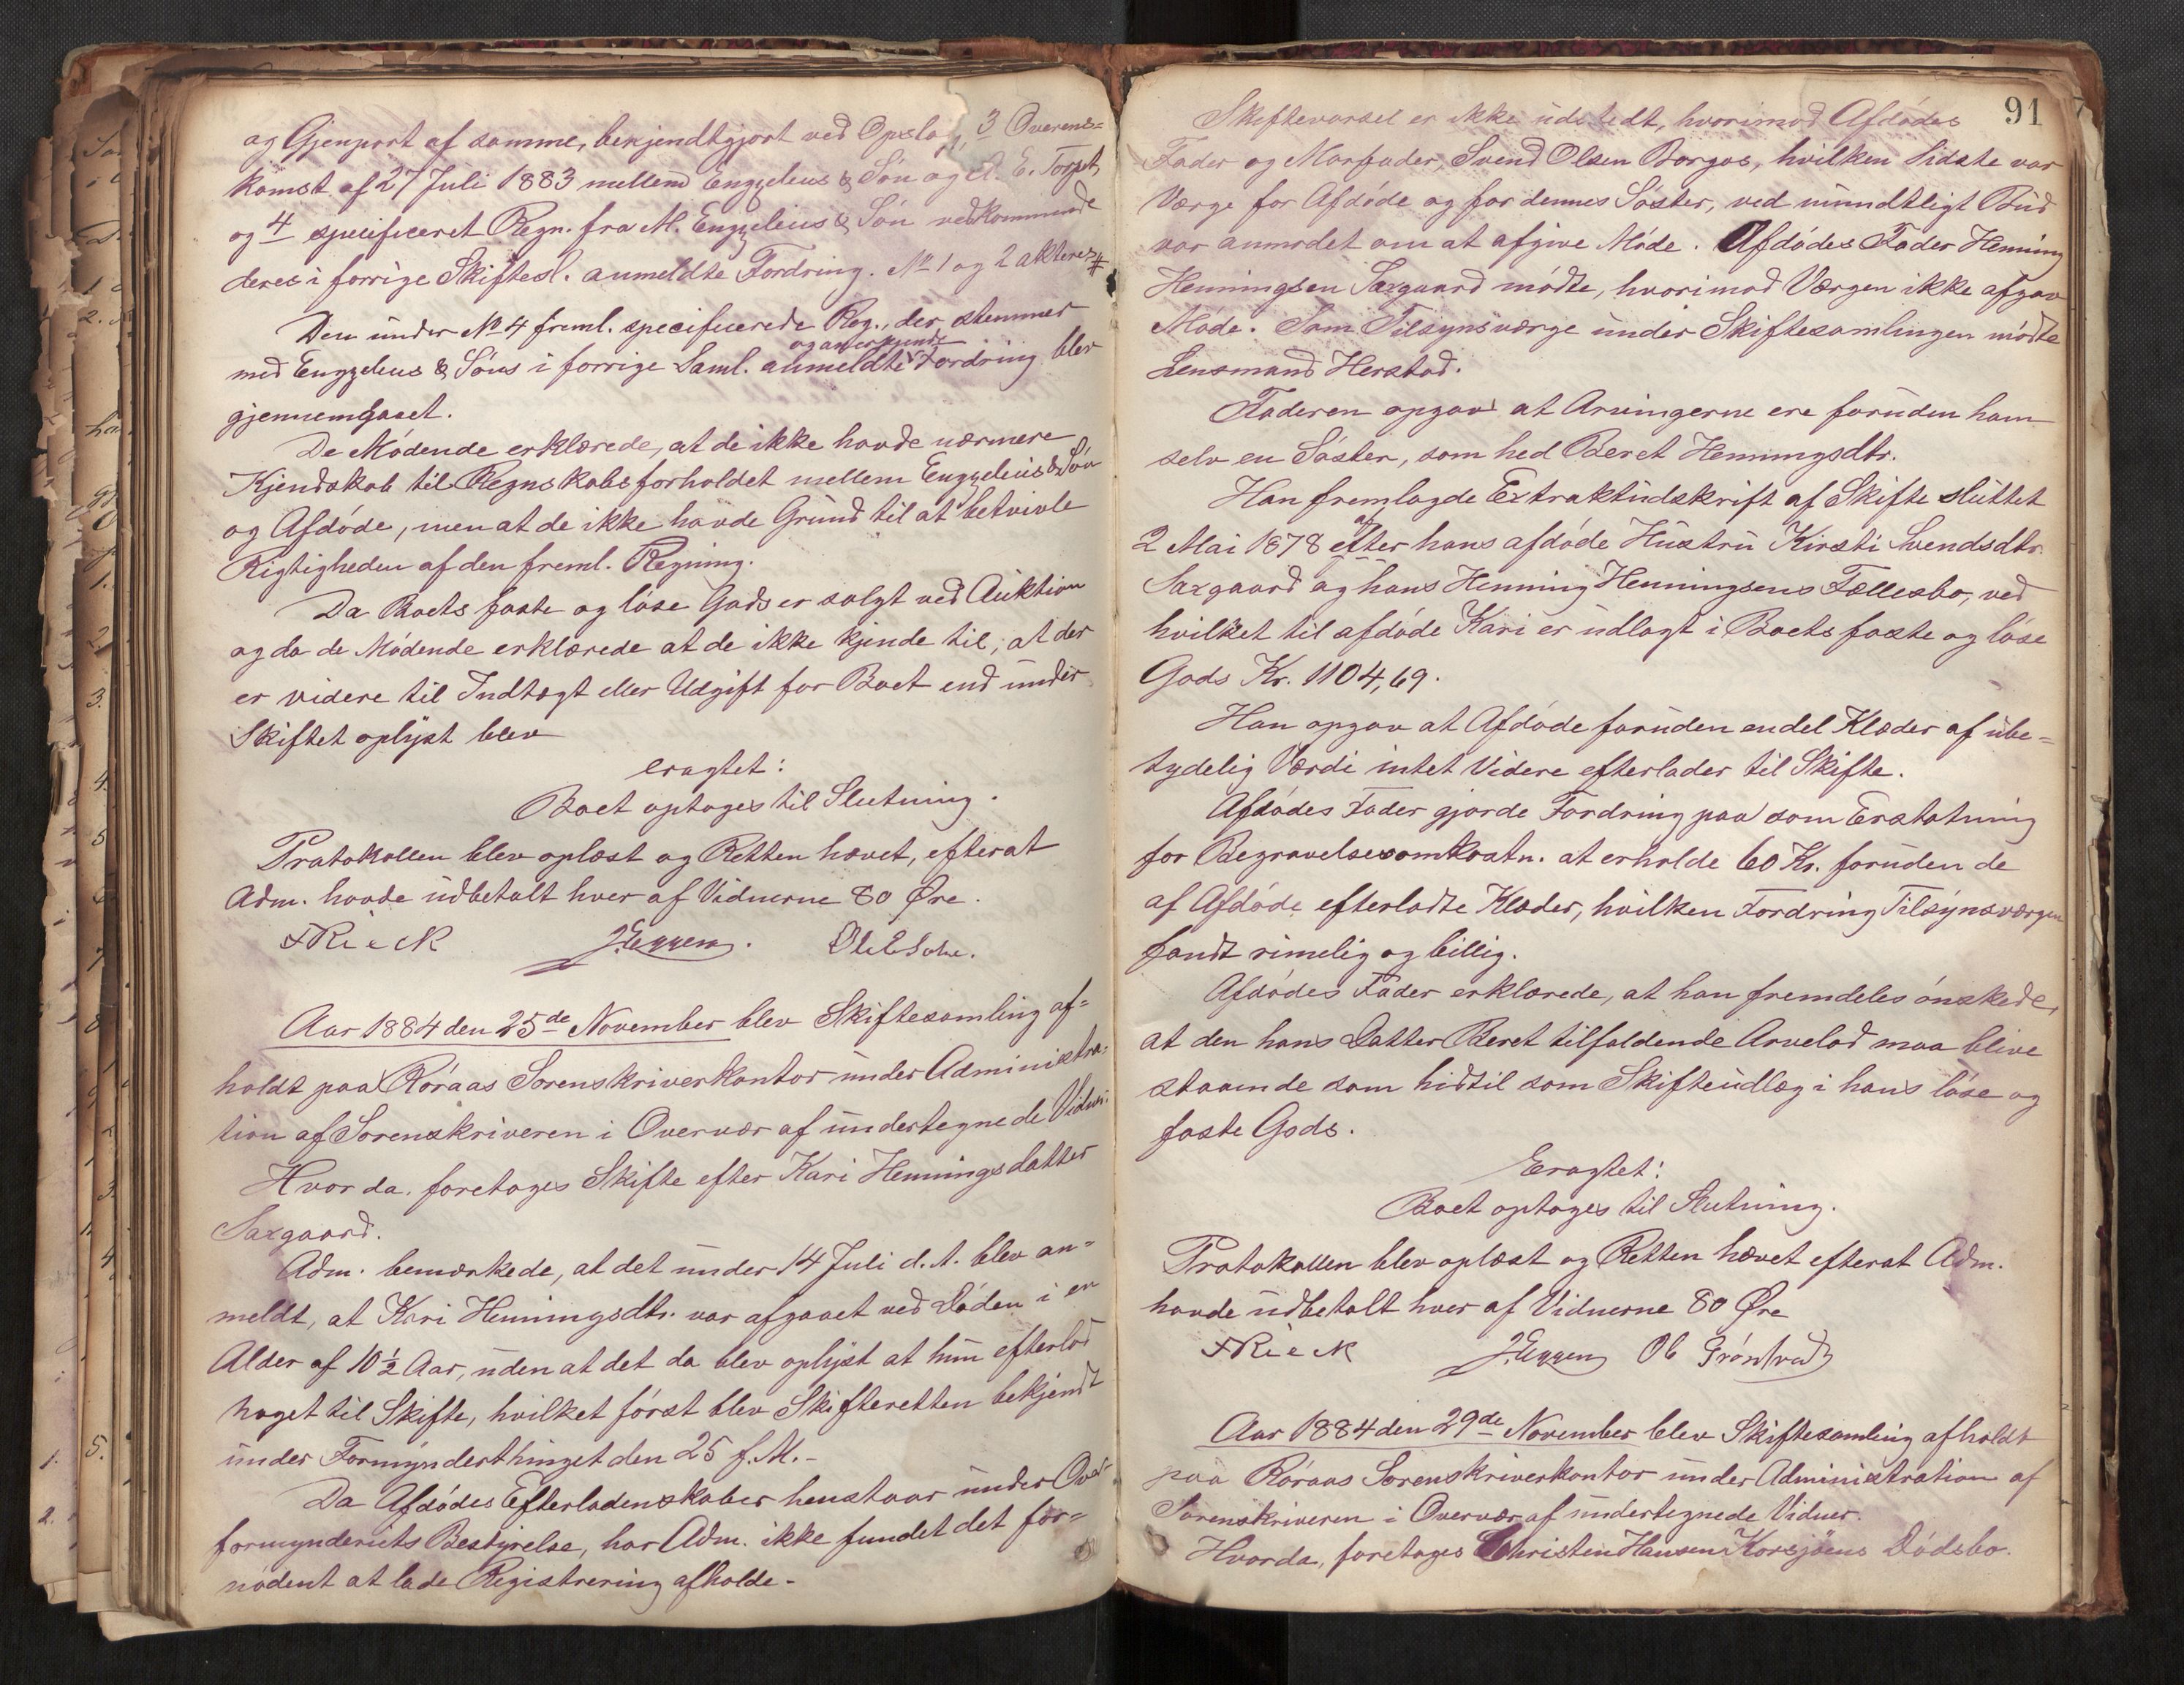 og Gjenpart af samme, bekjendtgjort ved Opslag, 3 Overens=
komst af 27 Juli 1883 mellem Engzelius & Søn og A. E. Torget,
og 4 specificeret Regn. fra M. Engzelius & Søn vedkommende
deres i forrige Skiftesl. anmeldte Fordring. No 1 og 2 akteres #
Den under No 4 freml. specificerede Reg., der stemmer
og anerkjendte
med Engzelius & Søns i forrige Saml. anmeldte Fordring blev
gjennemgaaet.
De Mødende erklærede, at de ikke havde nærmere
Kjendskab til Regnskabsforholdet mellem Engzelius & Søn
og Afdøde, men at de ikke havde Grund til at betvivle
Rigtigheden af den freml. Regning.
Da Boets faste og løse Gods er solgt ved Auktion
og da de Mødende erklærede at de ikke kjende til, at der
er videre til Indtægt eller Udgift for Boet end under
Skiftet oplyst blev
eragtet:
Boet optages til Slutning.
Protokollen blev oplæst og Retten hævet, efterat
Adm. havde udbetalt hver af Vidnerne 80 Øre.
F Rieck J. Eggen. Ole E
Aar 1884 den 25de November blev Skiftesamling af=
holdt paa Røraas Sorenskriverkontor under Administra=
tion af Sorenskriveren i Overvær af undertegnede Vidner.
Hvor da. foretages Skifte efter Kari Henningsdatter
Saxgaard.
Adm. bemærkede, at det under 14 Juli d. A. blev an=
meldt, at Kari Henningsdtr. var afgaaet ved Døden i en
Alder af 10 ½ Aar, uden at det da blev oplyst at hun efterlod
noget til Skifte, hvilket først blev Skifteretten bekjendt
under Formynderthinget den 25 f. M. -
Da Afdødes Efterladenskaber henstaar under Over=
formynderiets Bestyrelse, har Adm. ikke fundet det for=
nødent at lade Registrering afholde -
91
Skiftevarsel er ikke udstedt, hvorimod Afdødes
Fader og Morfader, Svend Olsen Borgos, hvilken Sidste var
Værge for Afdøde og for dennes Søster, ved mundtligt Bud
var anmodet om at afgive Møde. Afdødes Fader Henning
Henningsen Saxgaard mødte, hvorimod Værgen ikke afgav
Møde. Som Tilsynsværge under Skiftesamlingen mødte
Lensmand Herstad.
Faderen opgav at Arvingerne ere foruden ham
selv en Søster, som hed Beret Henningsdtr.
Han fremlagde Extraktudskrift af Skifte sluttet
2 Mai 1878 efter hans afdøde Hustru Kirsti Svendsdtr.
Saxgaard og hans Henning Henningsens Fællesbo, ved
hvilket til afdøde Kari er udlagt i Boets faste og løse
Gods Kr. 1104,69.
Han opgav at Afdøde foruden endel Klæder af ube=
tydelig Værdi intet Videre efterlader til Skifte.
Afdødes Fader gjorde Fordring paa som Erstatning
for Begravelsesomkostn. at erholde 60 Kr. foruden de
af Afdøde efterladte Klæder, hvilken Fordring Tilsynsværgen
fandt rimelig og billig.
Afdødes Fader erklærede, at han fremdeles ønskede,
at den hans Datter Beret tilfaldende Arvelod maa blive
staaende som hidtil som Skifteudlæg i hans løse og
faste Gods.
Eragtet:
Boet optages til Slutning.
Protokollen blev oplæst og Retten hævet efterat Adm.
havde udbetalt hver af Vidnerne 80 Øre
F Rieck J. Eggen
Aar 1884 den 29de November blev Skiftesamling afholdt
paa Røraas Sorenskriverkontor under Administration af
Sorenskriveren i Overvær af undertegnede Vidner.
Hvor da, foretages Christen Hansen Korsjøens Dødsbo.